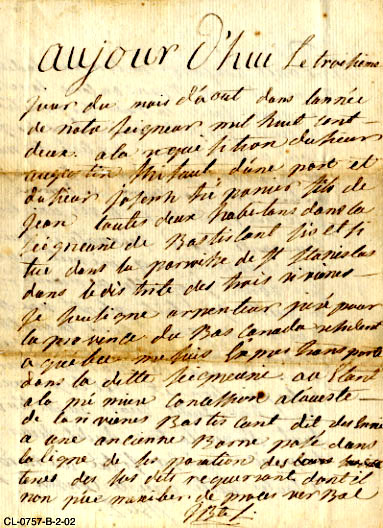 aujour d'hui Le troisieme
jour du mois d'aout dans l'année
de notre seigneur mil huit cent
deux a la requisition du sieur
augustin thifaut d'une part et
du sieur joseph trépanier fils de
jean toutes deux habitans dans la
seigneurie de Bastiscant sis et si
tué dans la paroisse de St Stanislas
dans le districte des trois rivieres
je soussigné arpenteur juré pour
la province du Bas Canada residant
a quebec me suis Expres transporté
dans la ditte seigneurie au
a la premiere concession a l'oueste
de la riviere Bastiscant dit des
a une ancienne Borne posé dans
la ligne de separation des
terres des sus dits requerant dont il
non pue de proces verBal
CL-0757-B-2-02